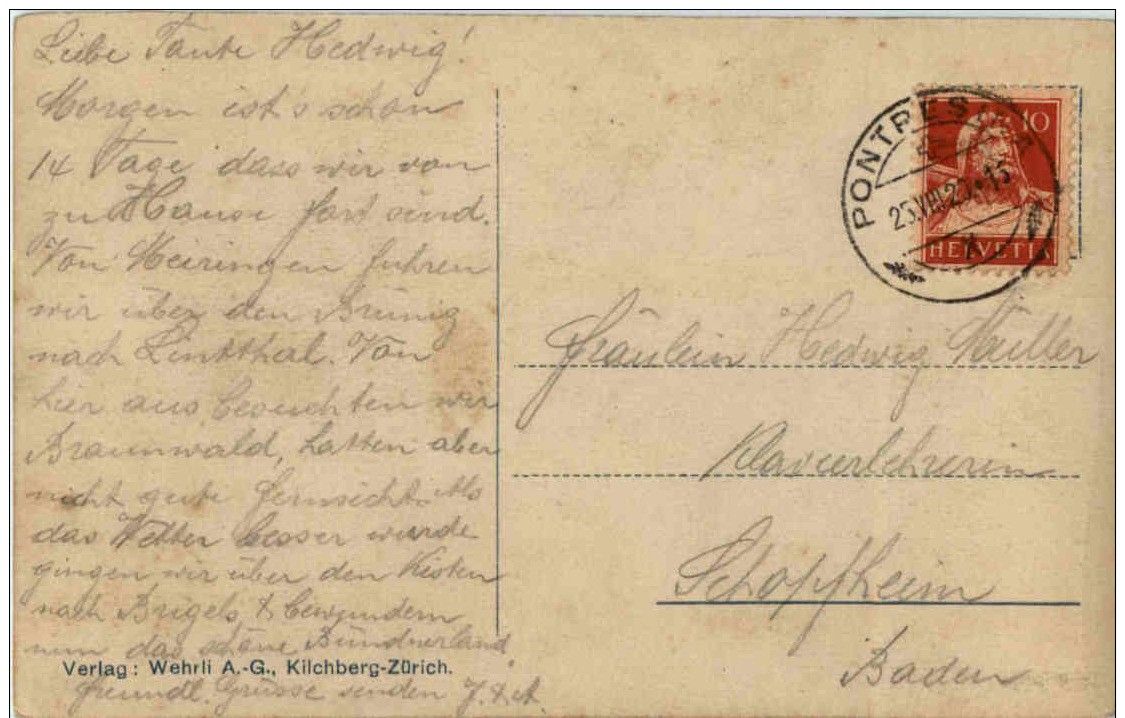 Liebe Tante Hedwig!
Morgen ist's schon
14 Tage dass wir von
zu Hause fort sind.
Von Meiringen fuhren
wir über den Brünig
nach Lintthal. Von
hier aus besuchten wir
Braunwald, hatten aber
nicht gute Fernsicht. Als
das Wetter besser wurde
gingen wir über den Kisten
nach Brigels & bewundern
nun das schöne Bündnerland.
Verlag: Wehrli A.-G., Kilchberg-Zürich.
Freundl. Grüsse senden J. & A.
PONTRESINA
25.VIII.2
15
10
HELVETI
Fräulein Hedwig Müller
Klavierlehrerin
Schopfheim
Baden